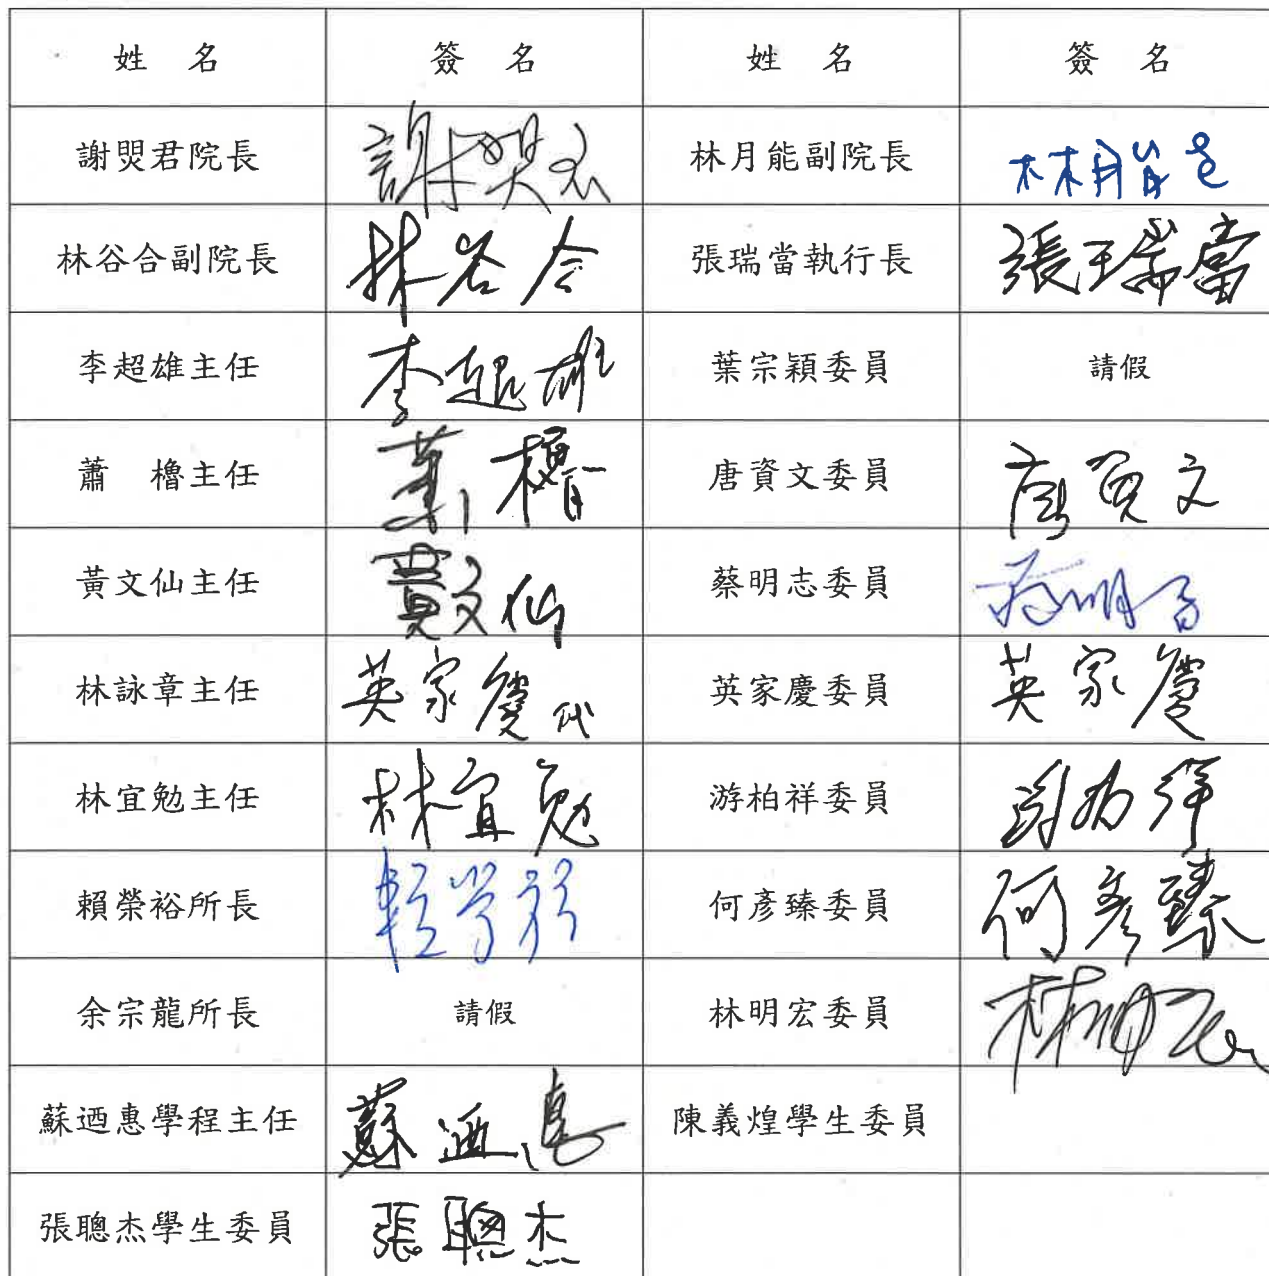 姓 名 簽 名 姓 名 簽 名
謝焸君院長 謝焸君 林月能副院長 林月能
林谷合副院長 林谷合 張瑞當執行長 張瑞當
李超雄主任 李超雄 葉宗穎委員 請假
蕭 櫓主任 蕭櫓 唐資文委員 唐資文
黃文仙主任 黃文仙 蔡明志委員 蔡明志
林詠章主任 英家慶代 英家慶委員 英家慶
林宜勉主任 林宜勉 游柏祥委員 游柏祥
賴榮裕所長 賴榮裕 何彥臻委員 何彥臻
余宗龍所長 請假 林明宏委員 林明宏
蘇迺惠學程主任 蘇迺惠 陳義煌學生委員
張聰杰學生委員 張聰杰